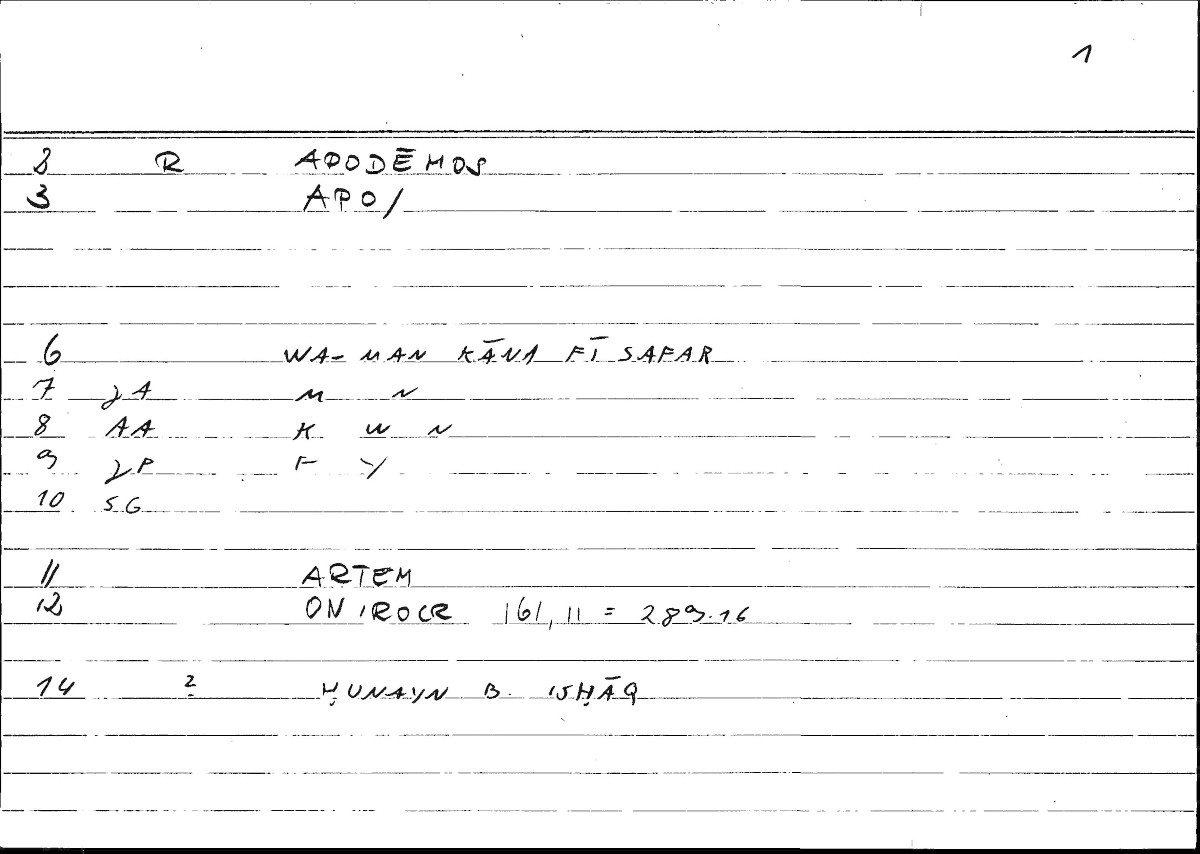 1
8 R APODĒMOS
3 APO/
6 WA-MAN KĀNA FĪ SAFAR
7 γA M N
8 AA K W N
9 γP F Y
10 SG
11 ARTEM
12 ONIROCR 161,11 = 289.16
14 2 ḤUNAYN B. ISḤĀQ